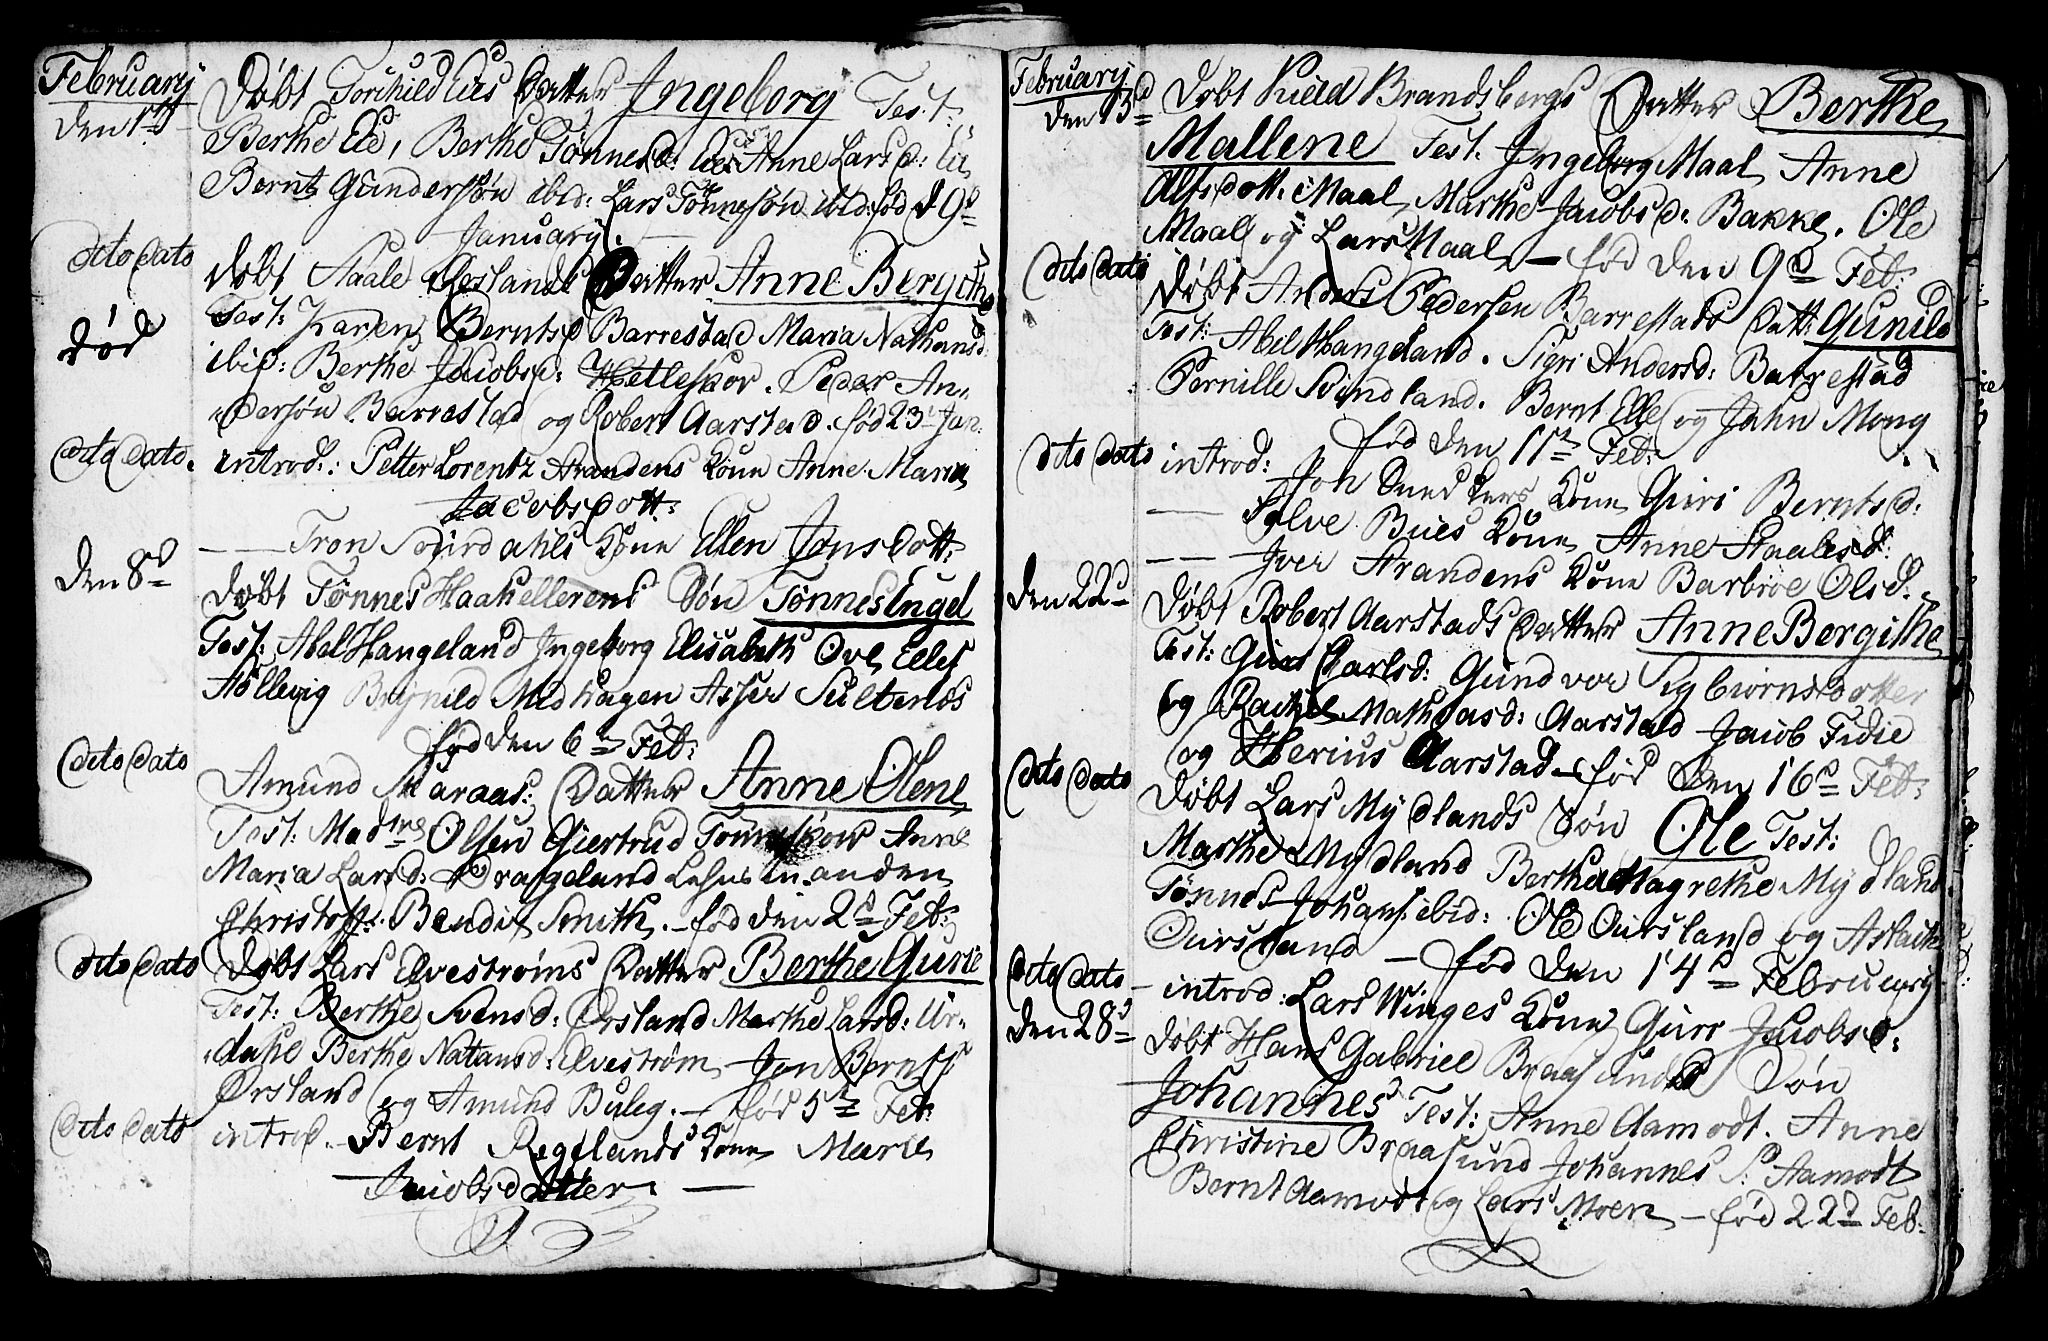 February
den 1ste
Døbt Torchild Eies Datter Ingeborg Test:
Berthe Eie, Berthe Tønnesd: Eies Anne Larsd: Ei
Bernt Gundersøn ibid: Lars Tønnesøn ibid: fød d 9d
January.
dito dato
død
døbt Staale Datter Anne Bergithe
Test: Karen Berntsd Barrestad Maria Nathansd
ibid: Berthe Jacobsd: Hetleskor. Peder An-
dersøn Barrestad og Robert Aarstad. fød 23 Jan:
dito dato.
introd: Petter Lorentz Strandens Kone Anne Maria
Jacobsdott:
— — Tron Svirdahls Kone Ellen Jonsdott:
den 8d
døbt Tønnes Haakellerens Søn Tønnes Engel
Test: Abel Hangeland Ingeborg Elisabeth Ove Elles
Støllevig Brynild Midhagen Asser
fød den 6te Feb:
dito dato
Amund Maraas: Datter Anne Olene
Test: Madme Olsen Giertrud Anne
Maria Larsd: Drageland anden
Christoff: Bendix Smith. — fød den 2d Feb:
dito dato
Døbt Lars Elvestrøms Datter Berthe Gurie
Test: Berthe Svensd: Ørsland Marthe Larsd: Ur-
dahl Berthe Natansd: Elvestrøm Jon Bernts
Ørsland og Amund Buleg. — fød 5te Feb:
dito dato
introd. Bernt Regelands Kone Marie
Jacobsdatter. —
February
den 15d
Døbt Brandsbergs Datter Berthe
Mallene Test. Ingeborg Maal Anne
Alfsdott: Maal, Marthe Jacobsd: Bakke. Ole
Maal og Lars Maal — fød den 9d Feb:
dito dato
Døbt Anders Pedersen Barrestads Datt: Gunild
Test: Abel Hangeland. Sigri Andersd: Barrestad
Pernille Svindland. Bernt Elle og Jahn Mong
fød den 11te Feb:
dito dato
introd:
Jon Kone Guri Berntsd:
— Sølve Bues Kone Anne Staalesd:
— — Iver Strandens Kone Barbroe Olsd:
den 22d
Døbt Robert Aarstads Datter Anne Bergithe
Test: Guri Carlsd: Gundvor Sigbiørnsdatter
og Rachel Mathiasd: Aarstad Jacob Fidie
og Aarstad — fød den 16d Feb:
dito dato
Døbt Lars Mydlands Søn Ole Test:
Marthe Mydland Berthe Magrethe Mydland
Tønnes Johans: ibid: Ole Oursland og Aslack
Oursland — fød den 14d February
dito dato
— introd: Lars Winges Kone Guri Jacobsd:
den 28d
døbt Hans Gabriel Braasunds Søn
Johannes Test: Anne Aamodt. Anne
Christine Braasund Johannes S: Aamodt
Bernt Aamodt og Lars Moen — fød 22d Feb: